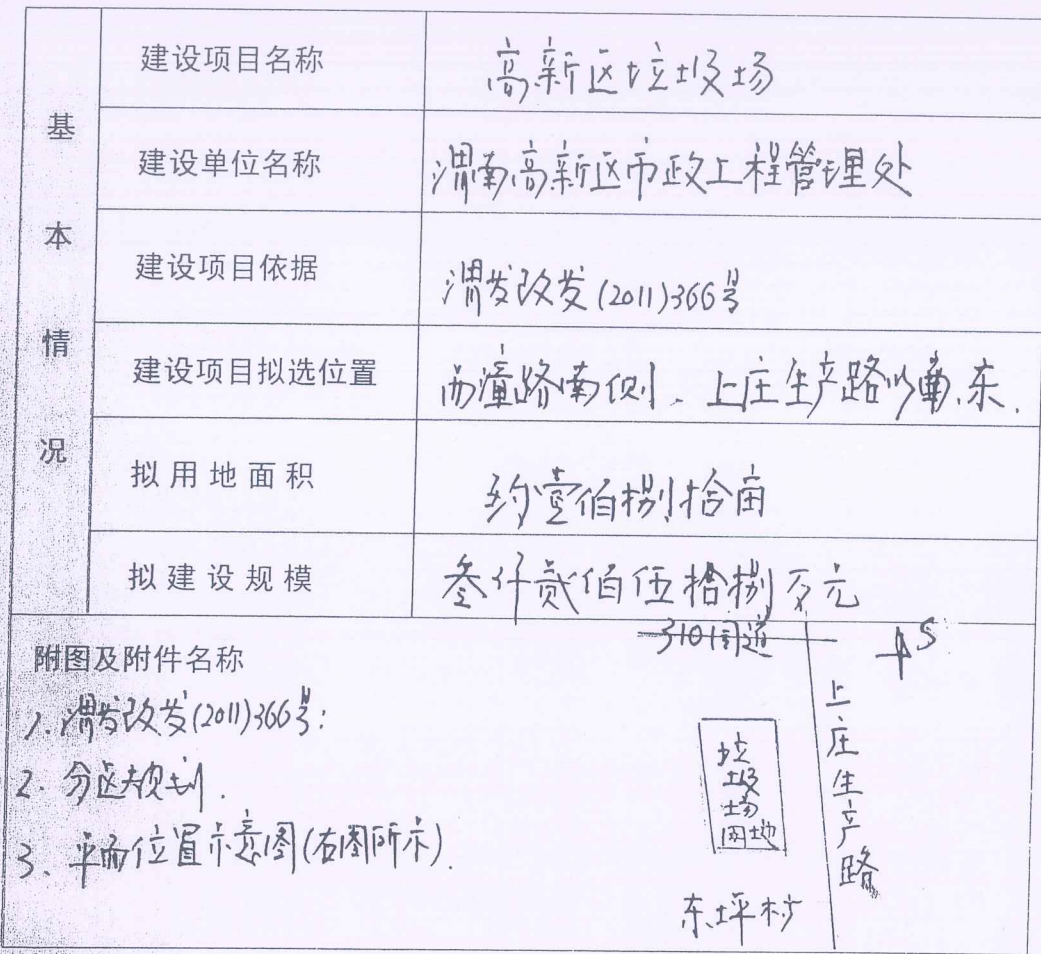 基本情况
建设项目名称 高新区垃圾场
建设单位名称 渭南高新区市政工程管理处
建设项目依据 渭发改发(2011)366号
建设项目拟选位置 西潼路南侧、上庄生产路以东.
拟用地面积 约壹佰捌拾亩
拟建设规模 叁仟贰佰伍拾捌万元
附图及附件名称
1. 渭发改发(2011)366号:
2. 分区规划.
3. 平面位置示意图(右图所示).
310国道
S
上庄生产路
垃圾场用地
东坪村